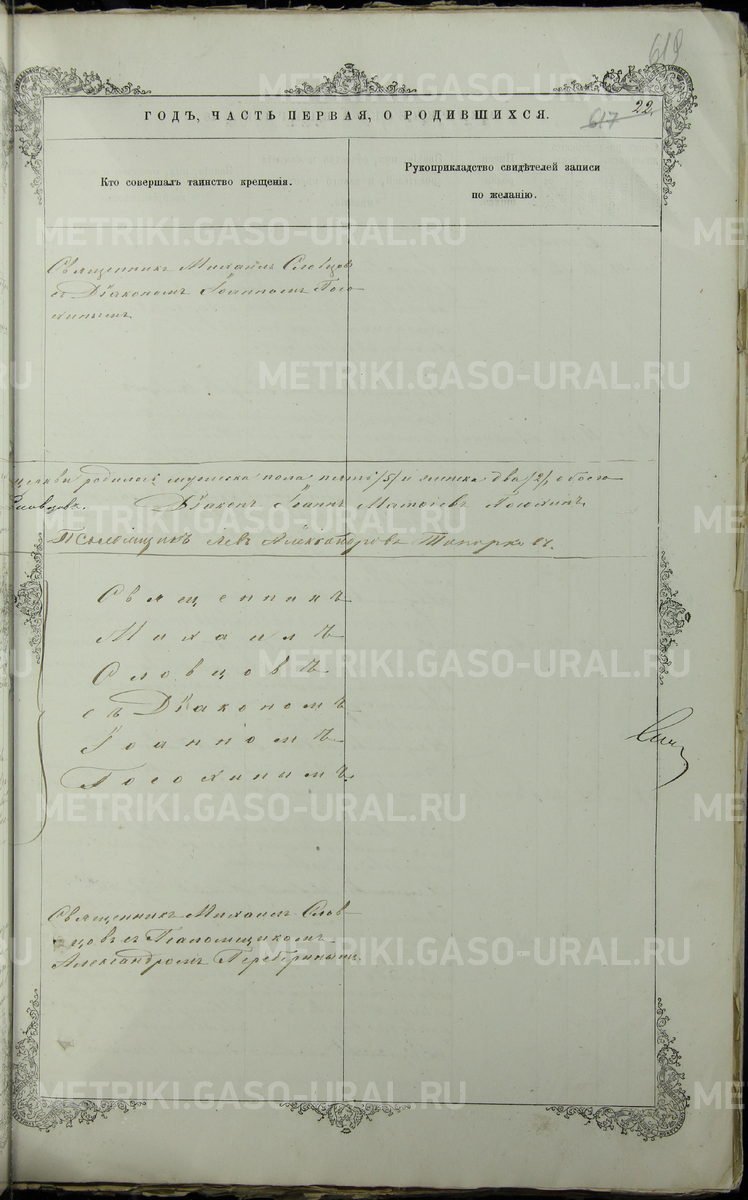 618
22.
617
ГОДЪ, ЧАСТЬ ПЕРВАЯ, О РОДИВШИХСЯ.
Кто совершалъ таинство крещенія.
Рукоприкладство свидѣтелей записи
по желанію.
Священникъ Михаилъ Словцовъ
съ Діакономъ Іоанномъ Пого-
хинымъ
церкви родилось мужеска пола пять /5/ и женска два /2/, обоего
Словцовъ. Діаконъ Іоаннъ
Псаломщикъ Левъ Александровъ Топорковъ.
Священникъ
Михаилъ
Словцовъ
съ Діакономъ
Іоанномъ
Священникъ Михаилъ Слов-
цовъ съ Псаломщикомъ
Александромъ
METRIKI.GASO-URAL.RU